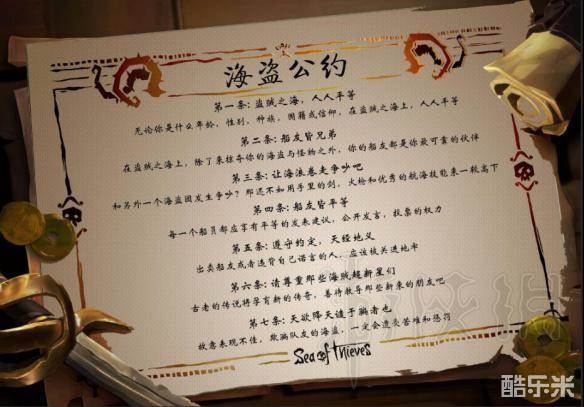 海盗公约
第一条:盗贼之海,人人平等
无论你是什么年龄,性别,种族,国籍或信仰,在盗贼之海上,人人平等
第二条:船友皆兄弟
在盗贼之海上,除了来掠夺你的海盗与怪物之外,你的船友都是你最可靠的伙伴
第三条:让海浪卷走争吵吧
和另外一个海盗团发生争吵?那还不如用手里的剑,火枪和优秀的航海技能来一较高下
第四条:船友皆平等
每一个船员都应享有平等的发表建议,公开发言,投票的权力
第五条:遵守约定,天经地义
出卖船友或者违背自己诺言的人,应该被关进地牢
第六条:请尊重那些海贼超新星们
古老的传说将孕育新的传奇,善待教导那些新来的朋友吧
第七条:天欲降天谴于骗者也
故意表现不佳,欺骗队友的海盗,一定会遭受苦难和惩罚
Sea of Thieves
酷乐米